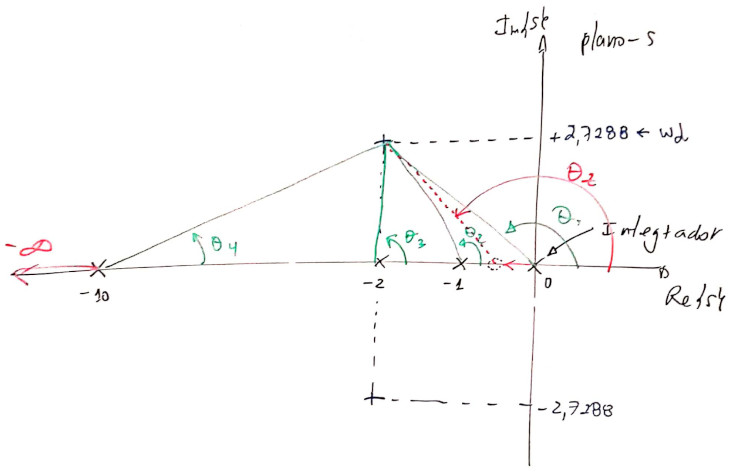 Im{s}
plano-s
+2,7288 ← wd
θz
θ1
Integrador
θ4
θ3
θ2
-∞
-10
-2
-1
0
Re{s}
-2,7288